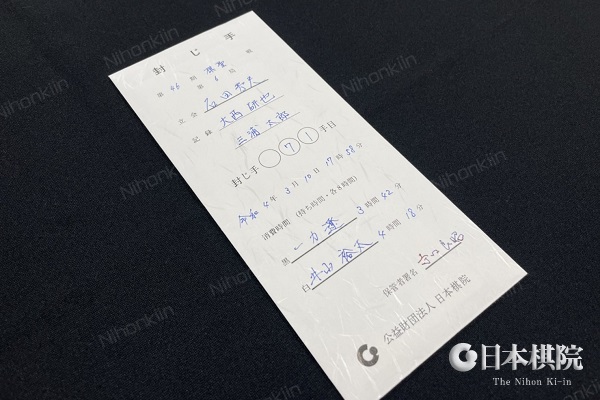 封じ手
第 46 期 棋聖 第 6 局
立会 石田芳夫
記録 大西研也
三浦太郎
封じ手 〇 7 1 手目
令和 4 年 3 月 10 日 17 時 58 分
消費時間 (持ち時間・各8時間)
黒 一力遼 3 時間 42 分
白 井山裕太 4 時間 18 分
保管者署名
公益財団法人 日本棋院
日本棋院
The Nihon Ki-in
Nihonkiin
Nihonkiin
Nihonkiin
Nihonkiin
Nihonkiin
Nihonkiin
Nihonkiin